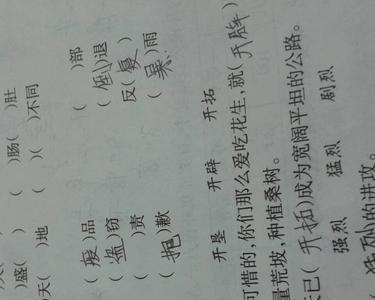 )盛( ) ( )肠( )肚
天( )地 ( )( )不同
(废)品 ( )部
(盗)窃 (倒)退
( )责 反(复)
(抱)歉 ( )雨
开垦 开辟 开拓
可惜的,你们那么爱吃花生,就(开辟)
荒坡,种植桑树。
已(开拓)成为宽阔平坦的公路。
强烈 猛烈 剧烈
猛烈的进攻。